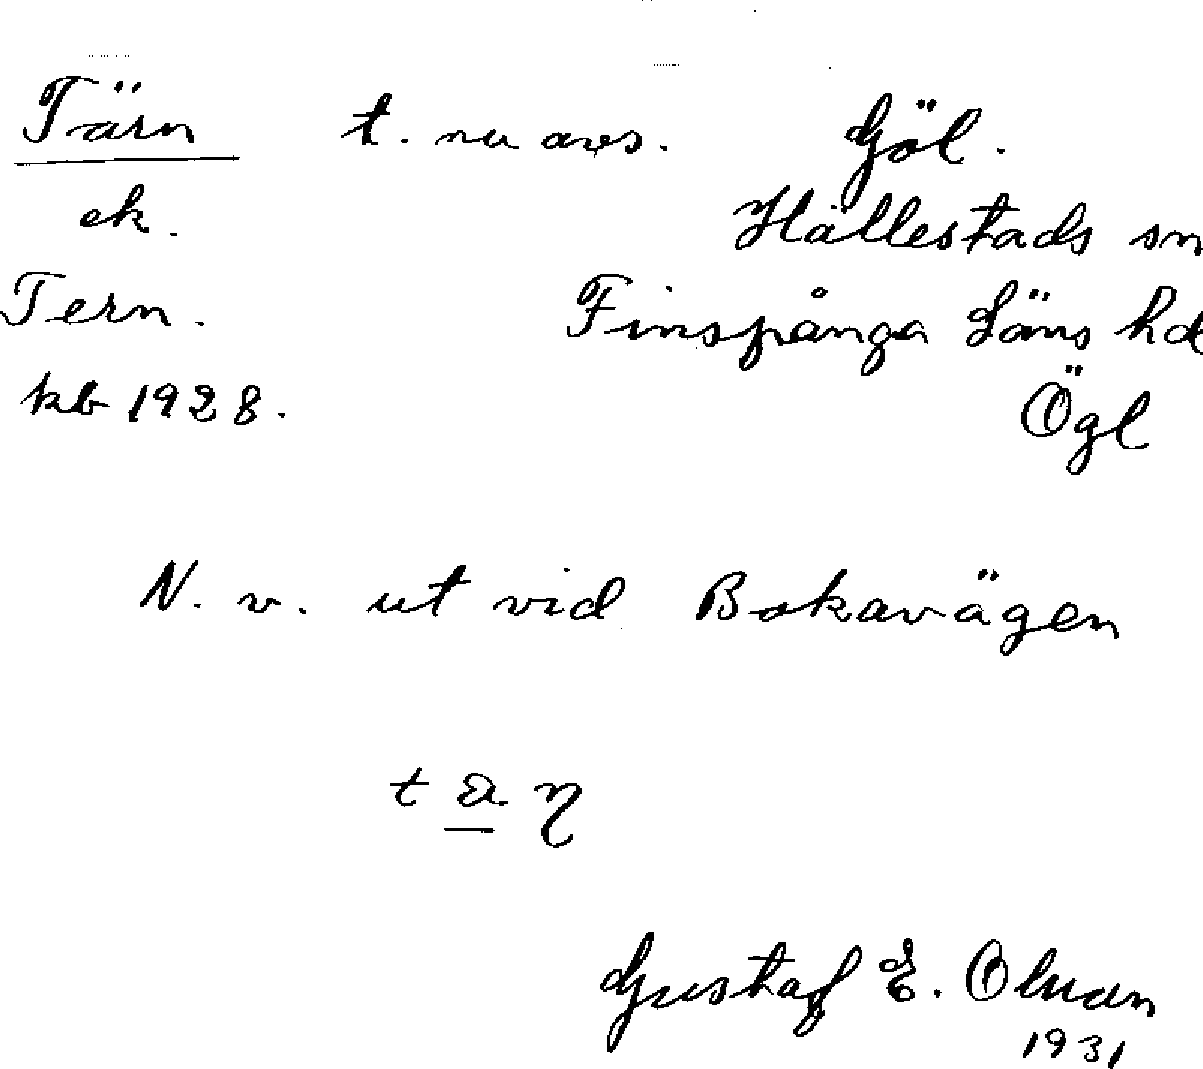 Tärn t. nu avs. Göl.
ek. Hällestads sn
Tern. Finspånga Läns hd
kb 1928. Ögl
N. v. ut vid Bokavägen
Gustaf E. Olman
1931